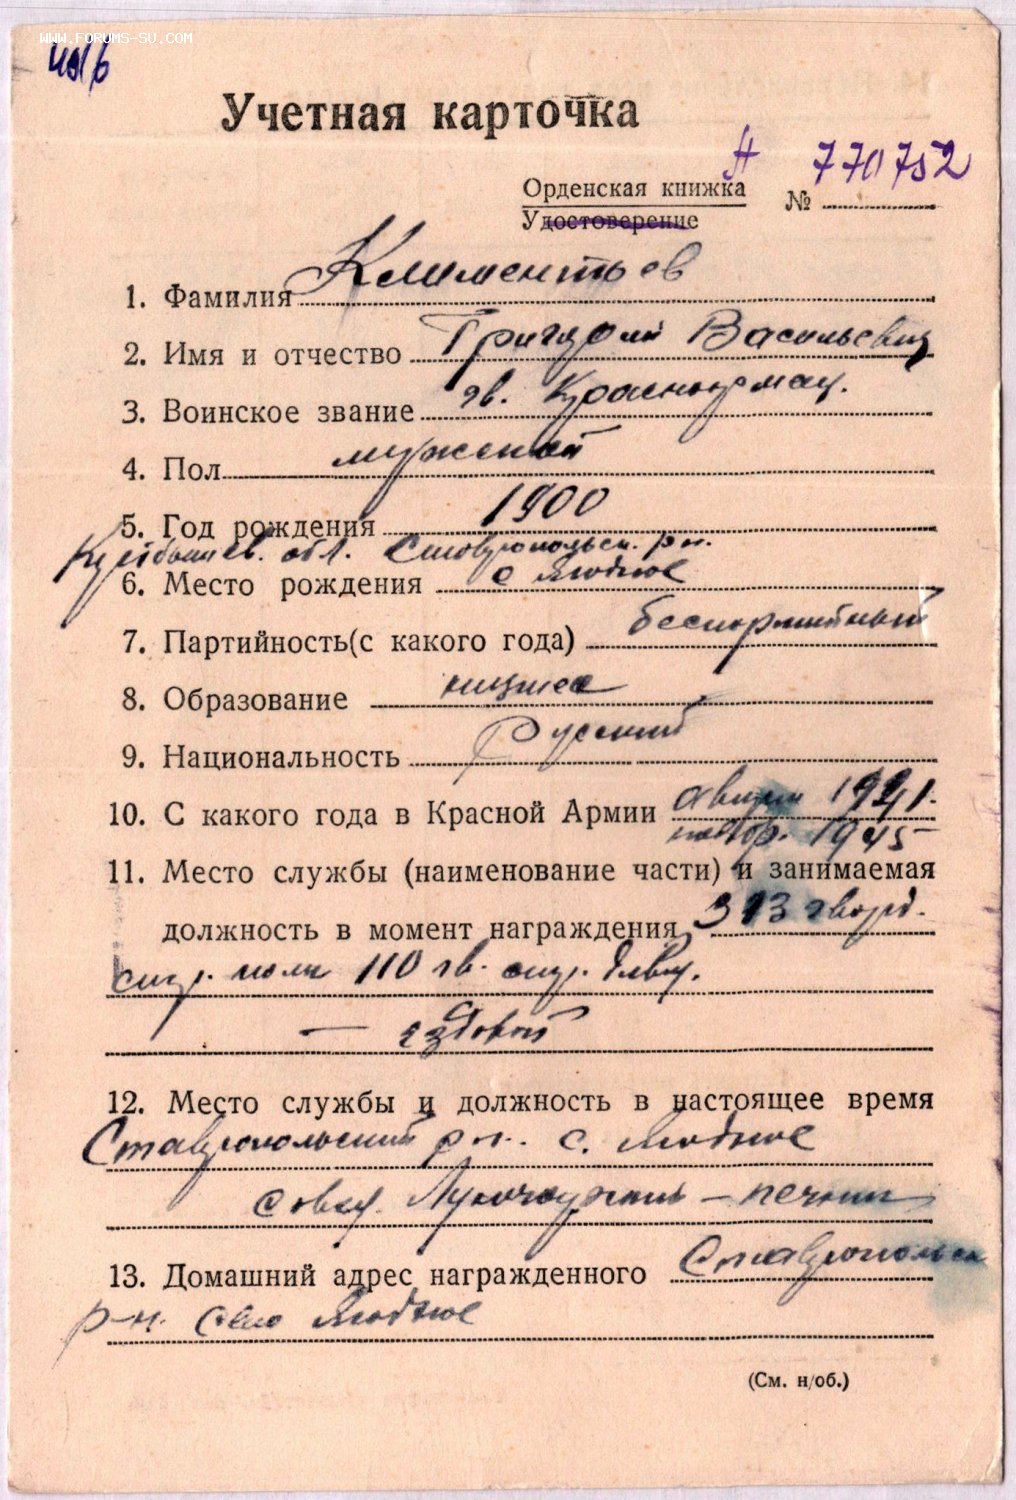 WWW.FORUMS-SU.COM
Учетная карточка
Орденская книжка А № 770752
Удостоверение
1. Фамилия Климентьев
2. Имя и отчество Григорий Васильевич
3. Воинское звание гв. Красноармец.
4. Пол мужской
5. Год рождения 1900
Куйбышев. обл. Ставропольск. р-н.
6. Место рождения с Ягодное
7. Партийность(с какого года) беспартийный
8. Образование низшее
9. Национальность Русский
10. С какого года в Красной Армии август 1941.
1945
11. Место службы (наименование части) и занимаемая
должность в момент награждения 313 гвард.
стр. полк 110 гв. стр. див.
— ездовой
12. Место службы и должность в настоящее время
Ставропольский р-н. с. Ягодное
— печник
13. Домашний адрес награжденного Ставропольск
р-н. село Ягодное
(См. н/об.)